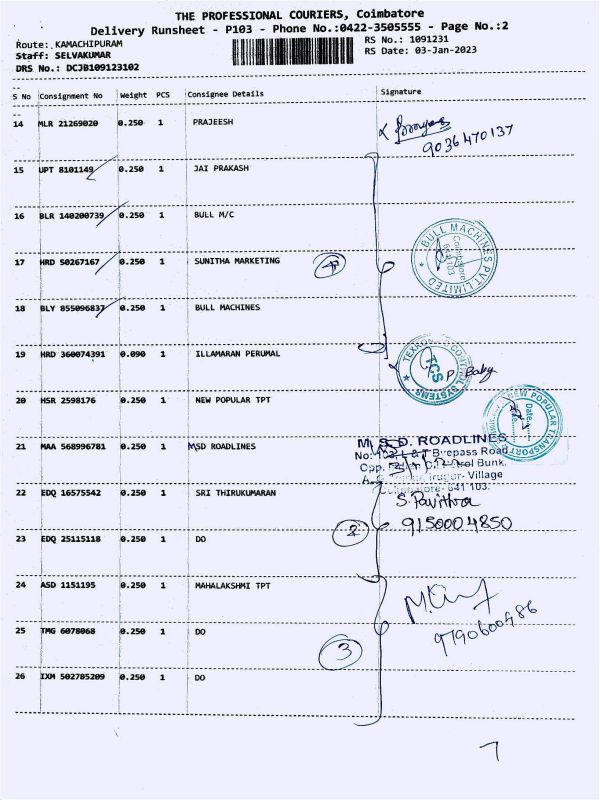 THE PROFESSIONAL COURIERS, Coimbatore
Delivery Runsheet - P103 - Phone No.:0422-3505555 - Page No.:2
Route: KAMACHIPURAM
Staff: SELVAKUMAR
DRS No.: DCJB109123102
RS No.: 1091231
RS Date: 03-Jan-2023
S No Consignment No Weight PCS Consignee Details Signature
14 MLR 21269020 0.250 1 PRAJEESH
9036470137
15 UPT 8101149 0.250 1 JAI PRAKASH
16 BLR 140200739 0.250 1 BULL M/C
BULL MACHINES PVT. LIMITED
Coimbatore
641 103
17 HRD 50267167 0.250 1 SUNITHA MARKETING
18 BLY 855096837 0.250 1 BULL MACHINES
19 HRD 360074391 0.090 1 ILLAMARAN PERUMAL
TCS
P. Baby
20 HSR 2598176 0.250 1 NEW POPULAR TPT
NEW POPULAR TRANSPORT
Date
21 MAA 568996781 0.250 1 MSD ROADLINES
M. S. D. ROADLINES
L & T Byepass Road
Opp. Bunk,
Village
641 103.
22 EDQ 16575542 0.250 1 SRI THIRUKUMARAN
S. Pavithra
9150004850
23 EDQ 25115118 0.250 1 DO
2
24 ASD 1151195 0.250 1 MAHALAKSHMI TPT
9790600486
25 TMG 6078068 0.250 1 DO
3
26 IXM 502785209 0.250 1 DO
7